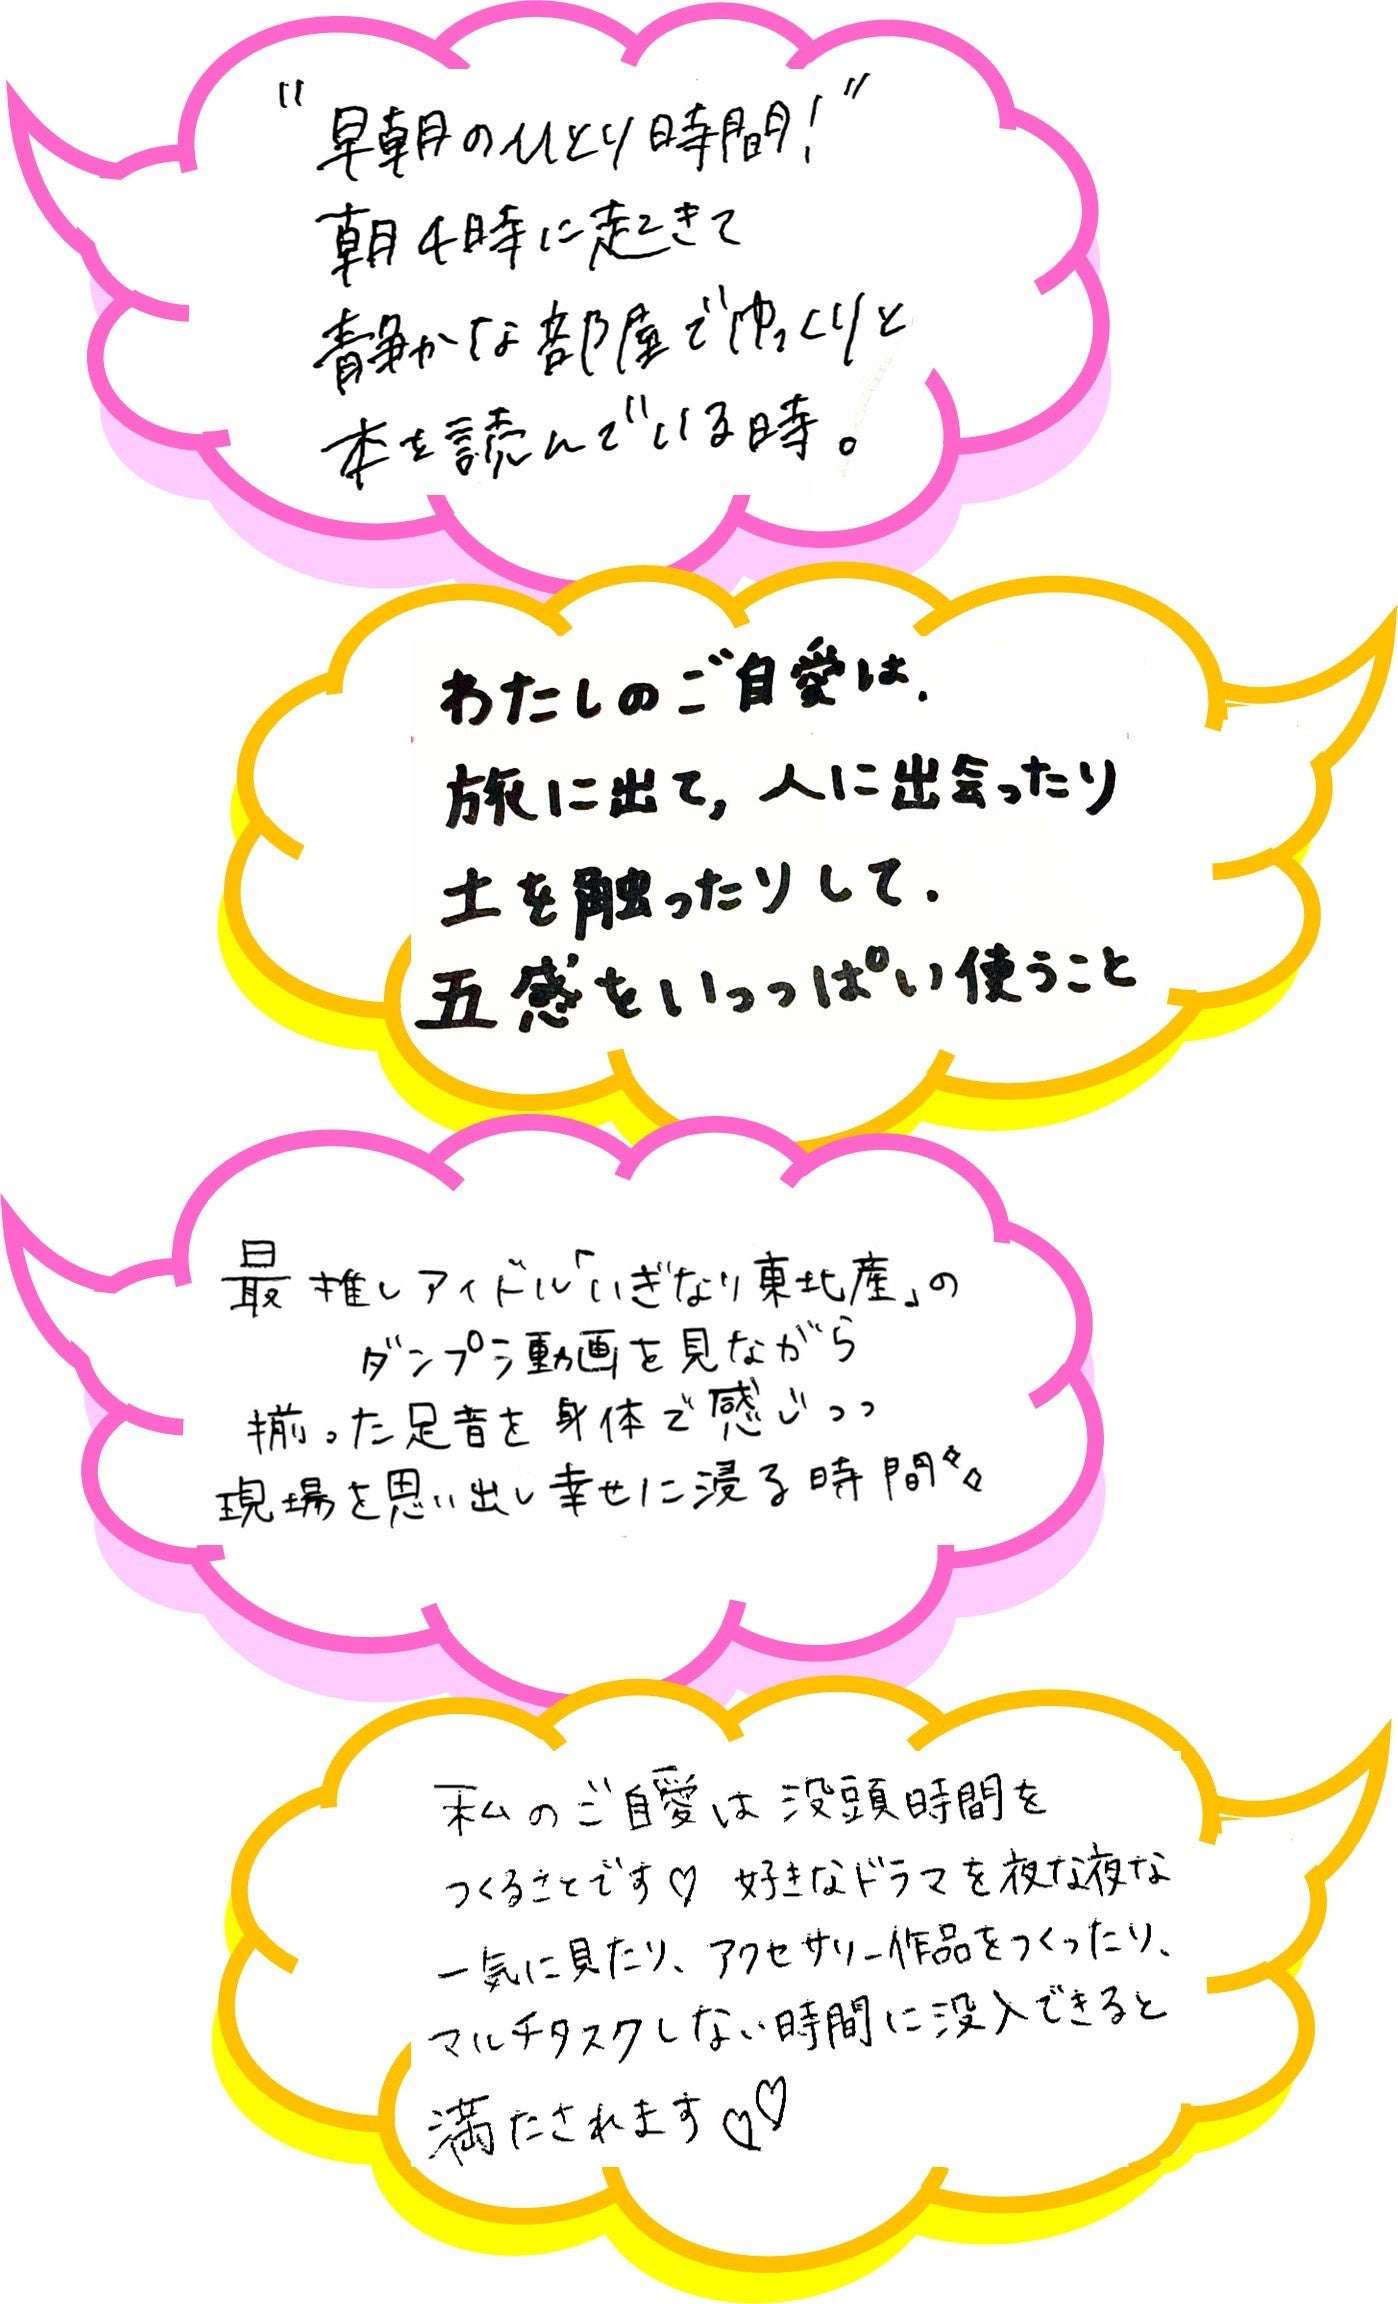 "早朝のひとり時間!"
朝4時に起きて
静かな部屋でゆっくりと
本を読んでいる時。
わたしのご自愛は、
旅に出て、人に出会ったり
土を触ったりして、
五感をいっっぱい使うこと
最推しアイドル「いぎなり東北産」の
ダンプラ動画を見ながら
揃った足音を身体で感じつつ
現場を思い出し幸せに浸る時間
私のご自愛は没頭時間を
つくることです♡ 好きなドラマを夜な夜な
一気に見たり、アクセサリー作品をつくったり、
マルチタスクしない時間に没入できると
満たされます♡♡